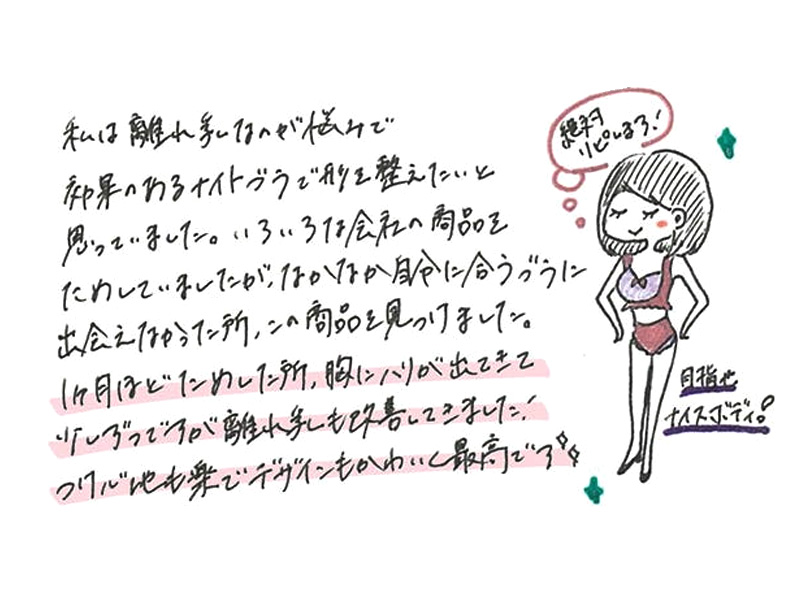 私は離れ乳なのが悩みで
効果のあるナイトブラで形を整えたいと
思っていました。いろいろな会社の商品を
ためしていましたが、なかなか自分に合うブラに
出会えなかった所、この商品を見つけました。
1ヶ月ほどためした所、胸にハリが出てきて
少しずつですが離れ乳も改善してきました!
つけ心地も楽でデザインもかわいく最高です
絶対
リピします!
目指せ
ナイスボディ!